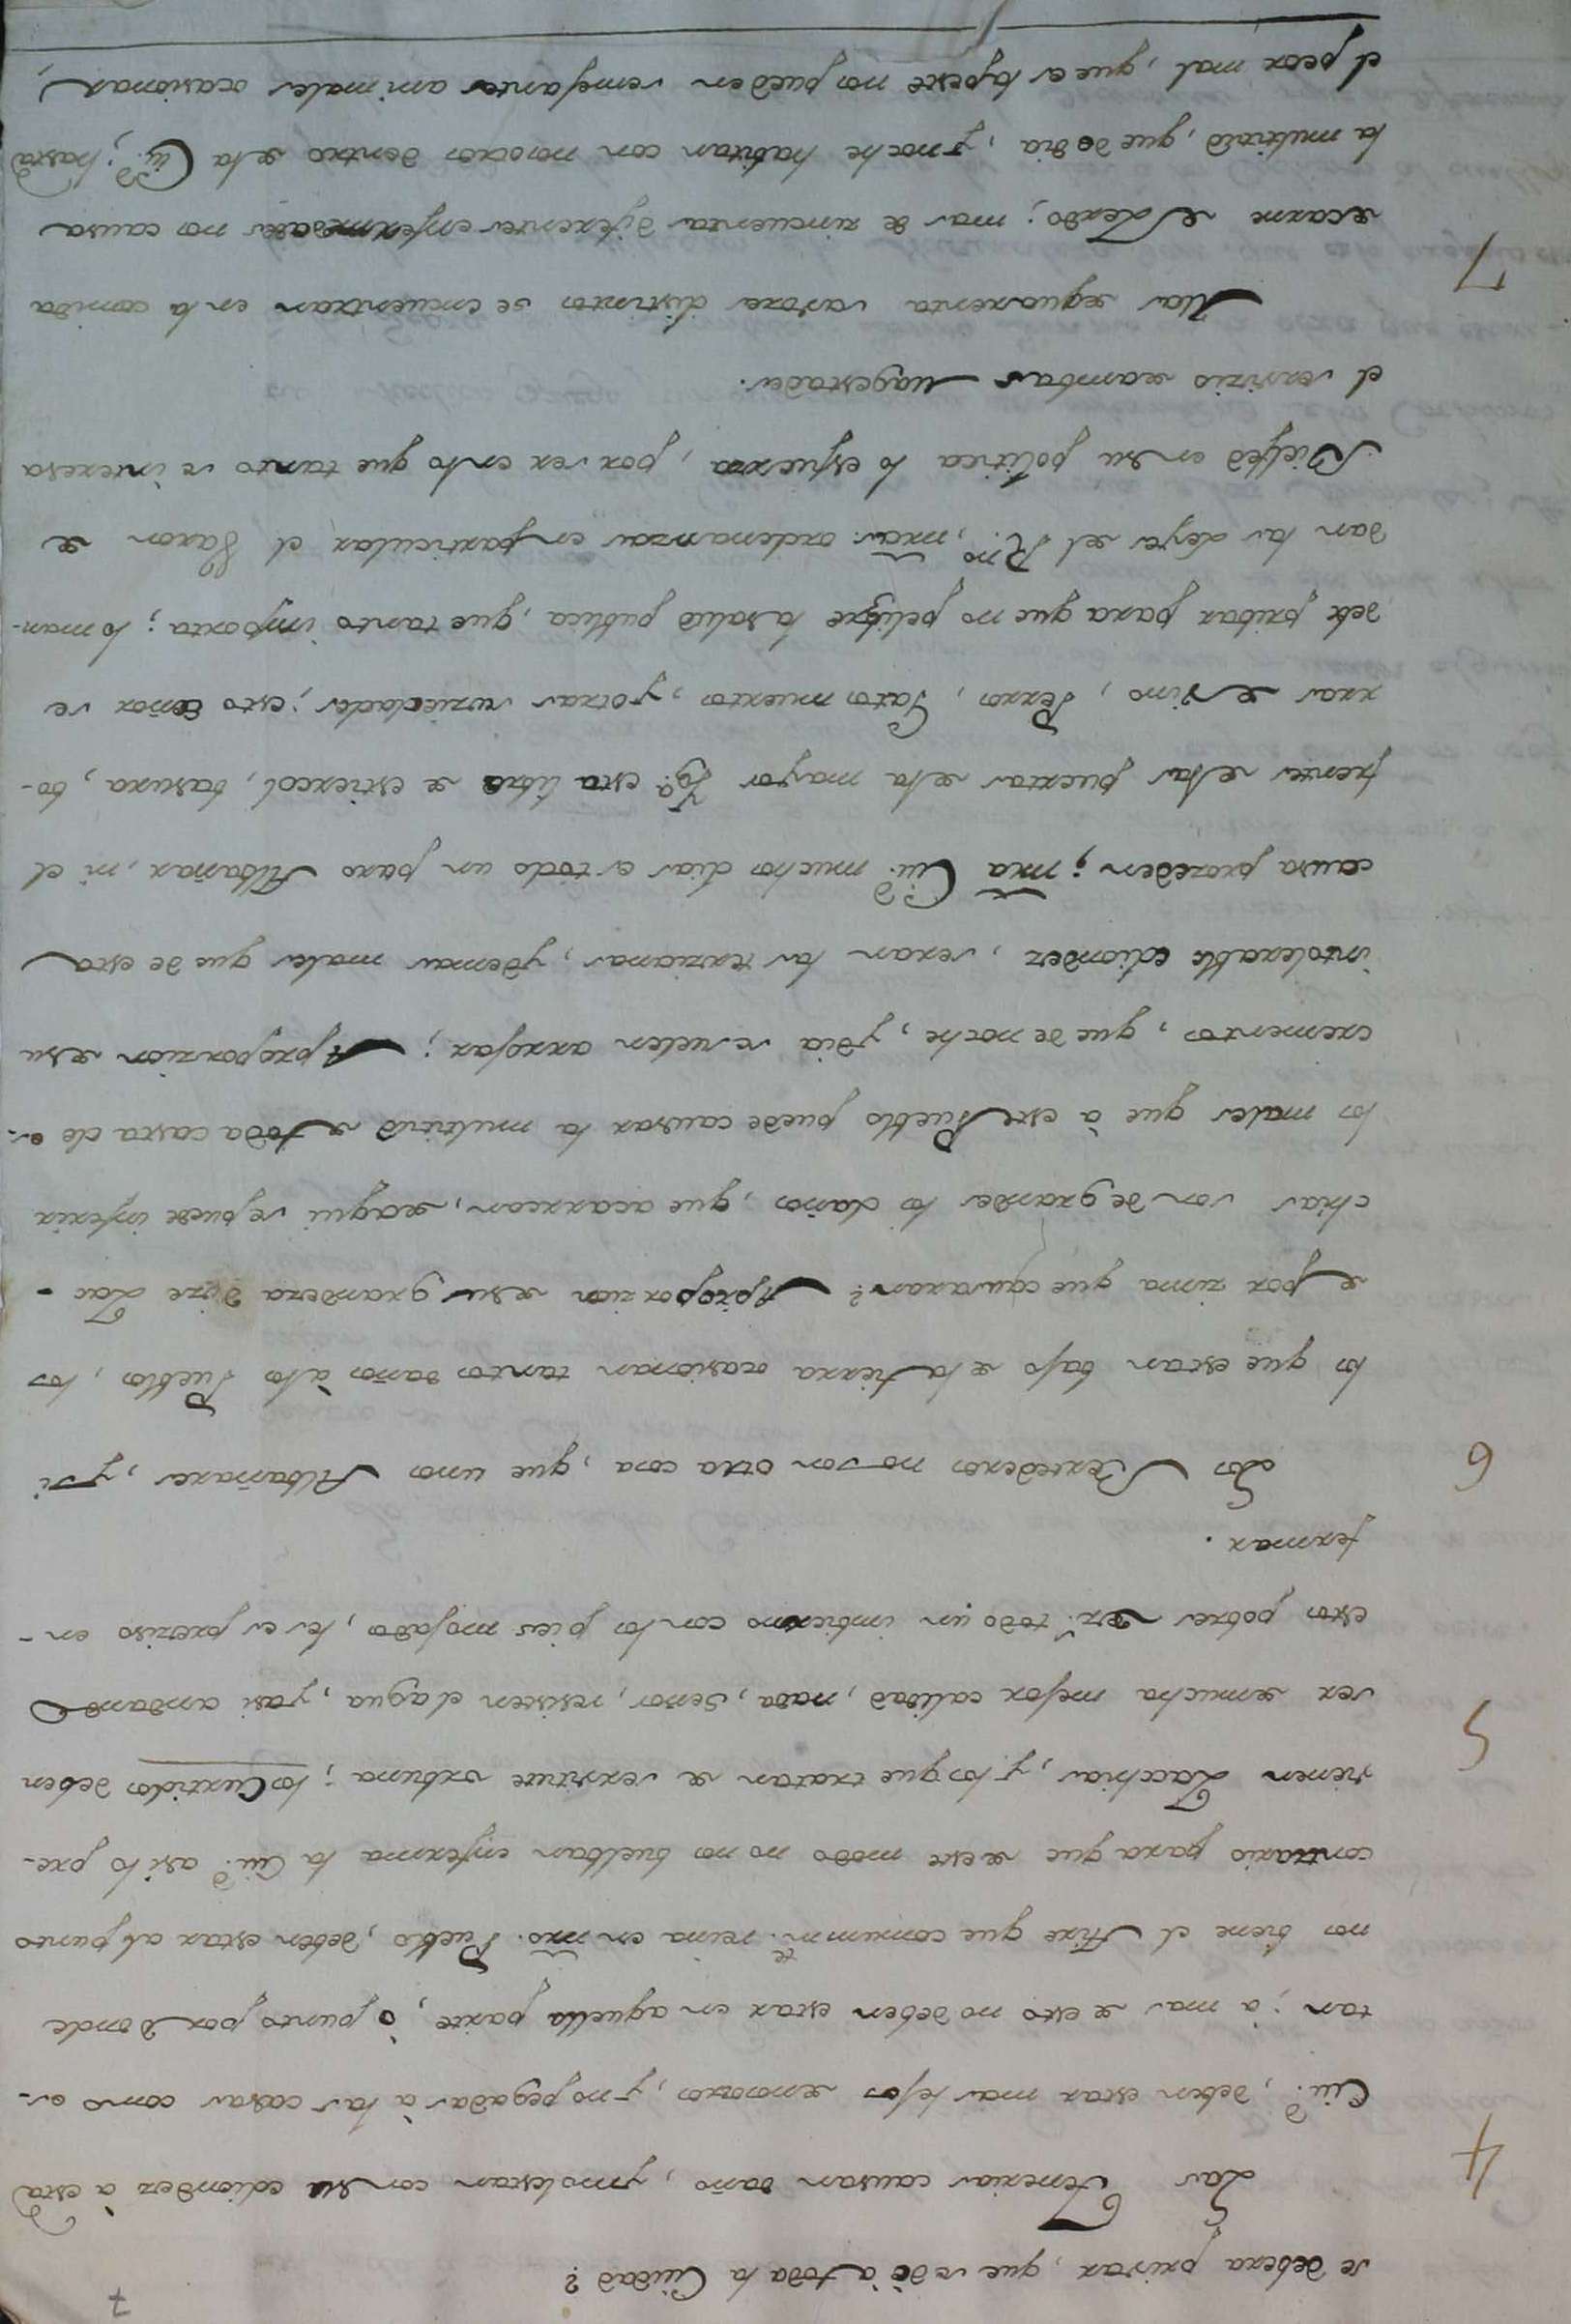 7
se debera privar, que se dè à toda la Ciudad?
4 Las Tenerias causan daño, y molestan con su ediondez à esta
Ciu.d, deben estar mas lejos de nosotros, y no pegadas à las casas como es-
tan; à mas de esto no deben estar en aquella parte, ò punto por donde
nos biene el Aire que comunm.te reina en nr̃o. Pueblo, deben estar al punto
contrario para que de este modo no nos buelban enferma la Ciu.d asi lo pre-
5 vienen Zacchias, y los que tratan de versitute urbana; los Curtidos deben
ser de mucha mejor calidad, nada, Señor, resisten el agua, y asi andando
estos pobres todo un imbierno con los pies mojados, les es preziso en-
fermar.
6 Los Vertederos no son otra cosa, que unos Albañares, y si
los que estan bajo de la tierra ocasionan tantos daños à los Pueblos, los
de por zima que causaran? A proporzion de su grandeza dize Zac-
chias son de grandes los daños, que acarrean, de aqui se puede inferir
los males que à este Pueblo puede causar la multitud de toda casta de es-
crementos, que de noche, y dia se suelen arrojar; A proporzion de su
intolerable ediondez, seran las terzianas, y demas males que de esta
causa prozeden; nr̃a Ciu.d muchos dias es todo un puro Albañar, ni el
frente de las puertas de la mayor Yg.a esta libre de estiercol, basura, bo-
rras de vino, Perros, Gatos muertos, y otras suziedades; esto Señor se
debe pribar para que no peligre la salud publica, que tanto importa; lo man-
dan las Leyes del R.no, nr̃as. ordenanzas en particular el Varon de
Bielfed en su politica lo esfuerza, por ser en lo que tanto se interesa
el servizio de ambas Magestades.
7 Mas de quarenta sabores distintos se encuentran en la comida
de carne de Zerdo; mas de zincuenta diferentes enfermedades nos causa
la multitud, que de dia, y noche habitan con nosotros dentro de la Ciu.d; hasta
el peor mal, que es la peste nos pueden semejantes animales ocasionar,